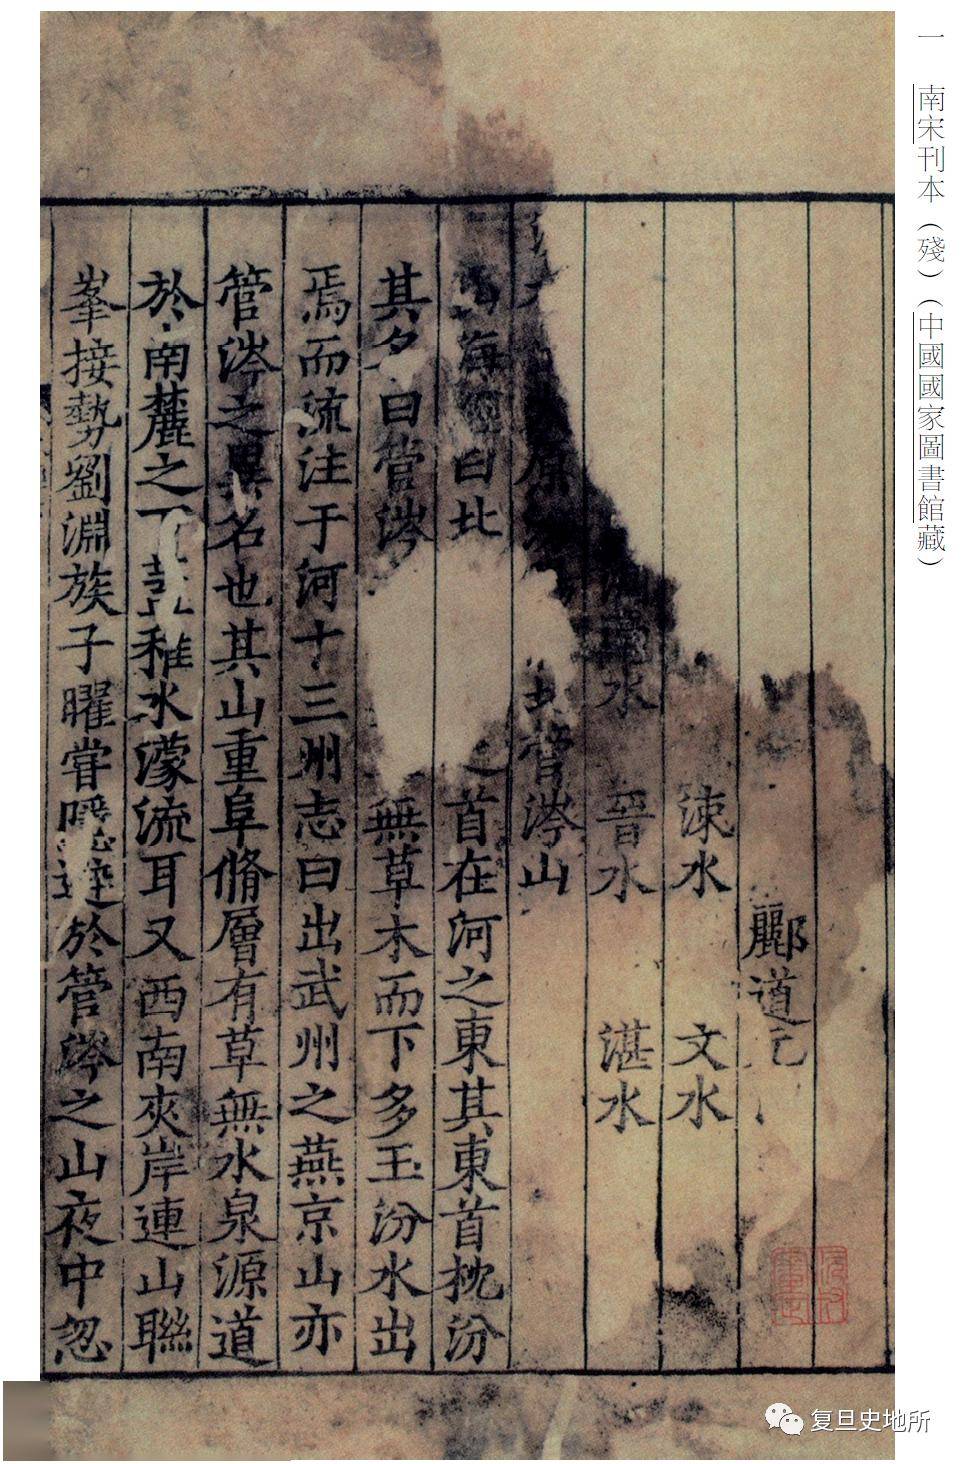 一 南宋刊本（殘）（中國國家圖書館藏）
酈道元
涑水 文水
水 晉水 湛水
原 北管涔山
海經曰北 之首在河之東其東首枕汾
其名曰管涔 無草木而下多玉汾水出
焉而流注于河十三州志曰出武州之燕京山亦
管涔之異名也其山重阜脩層有草無水泉源道
於南麓之下 稚水濛流耳又西南夾岸連山聯
峯接勢劉淵族子曜嘗隱避於管涔之山夜中忽
复旦史地所